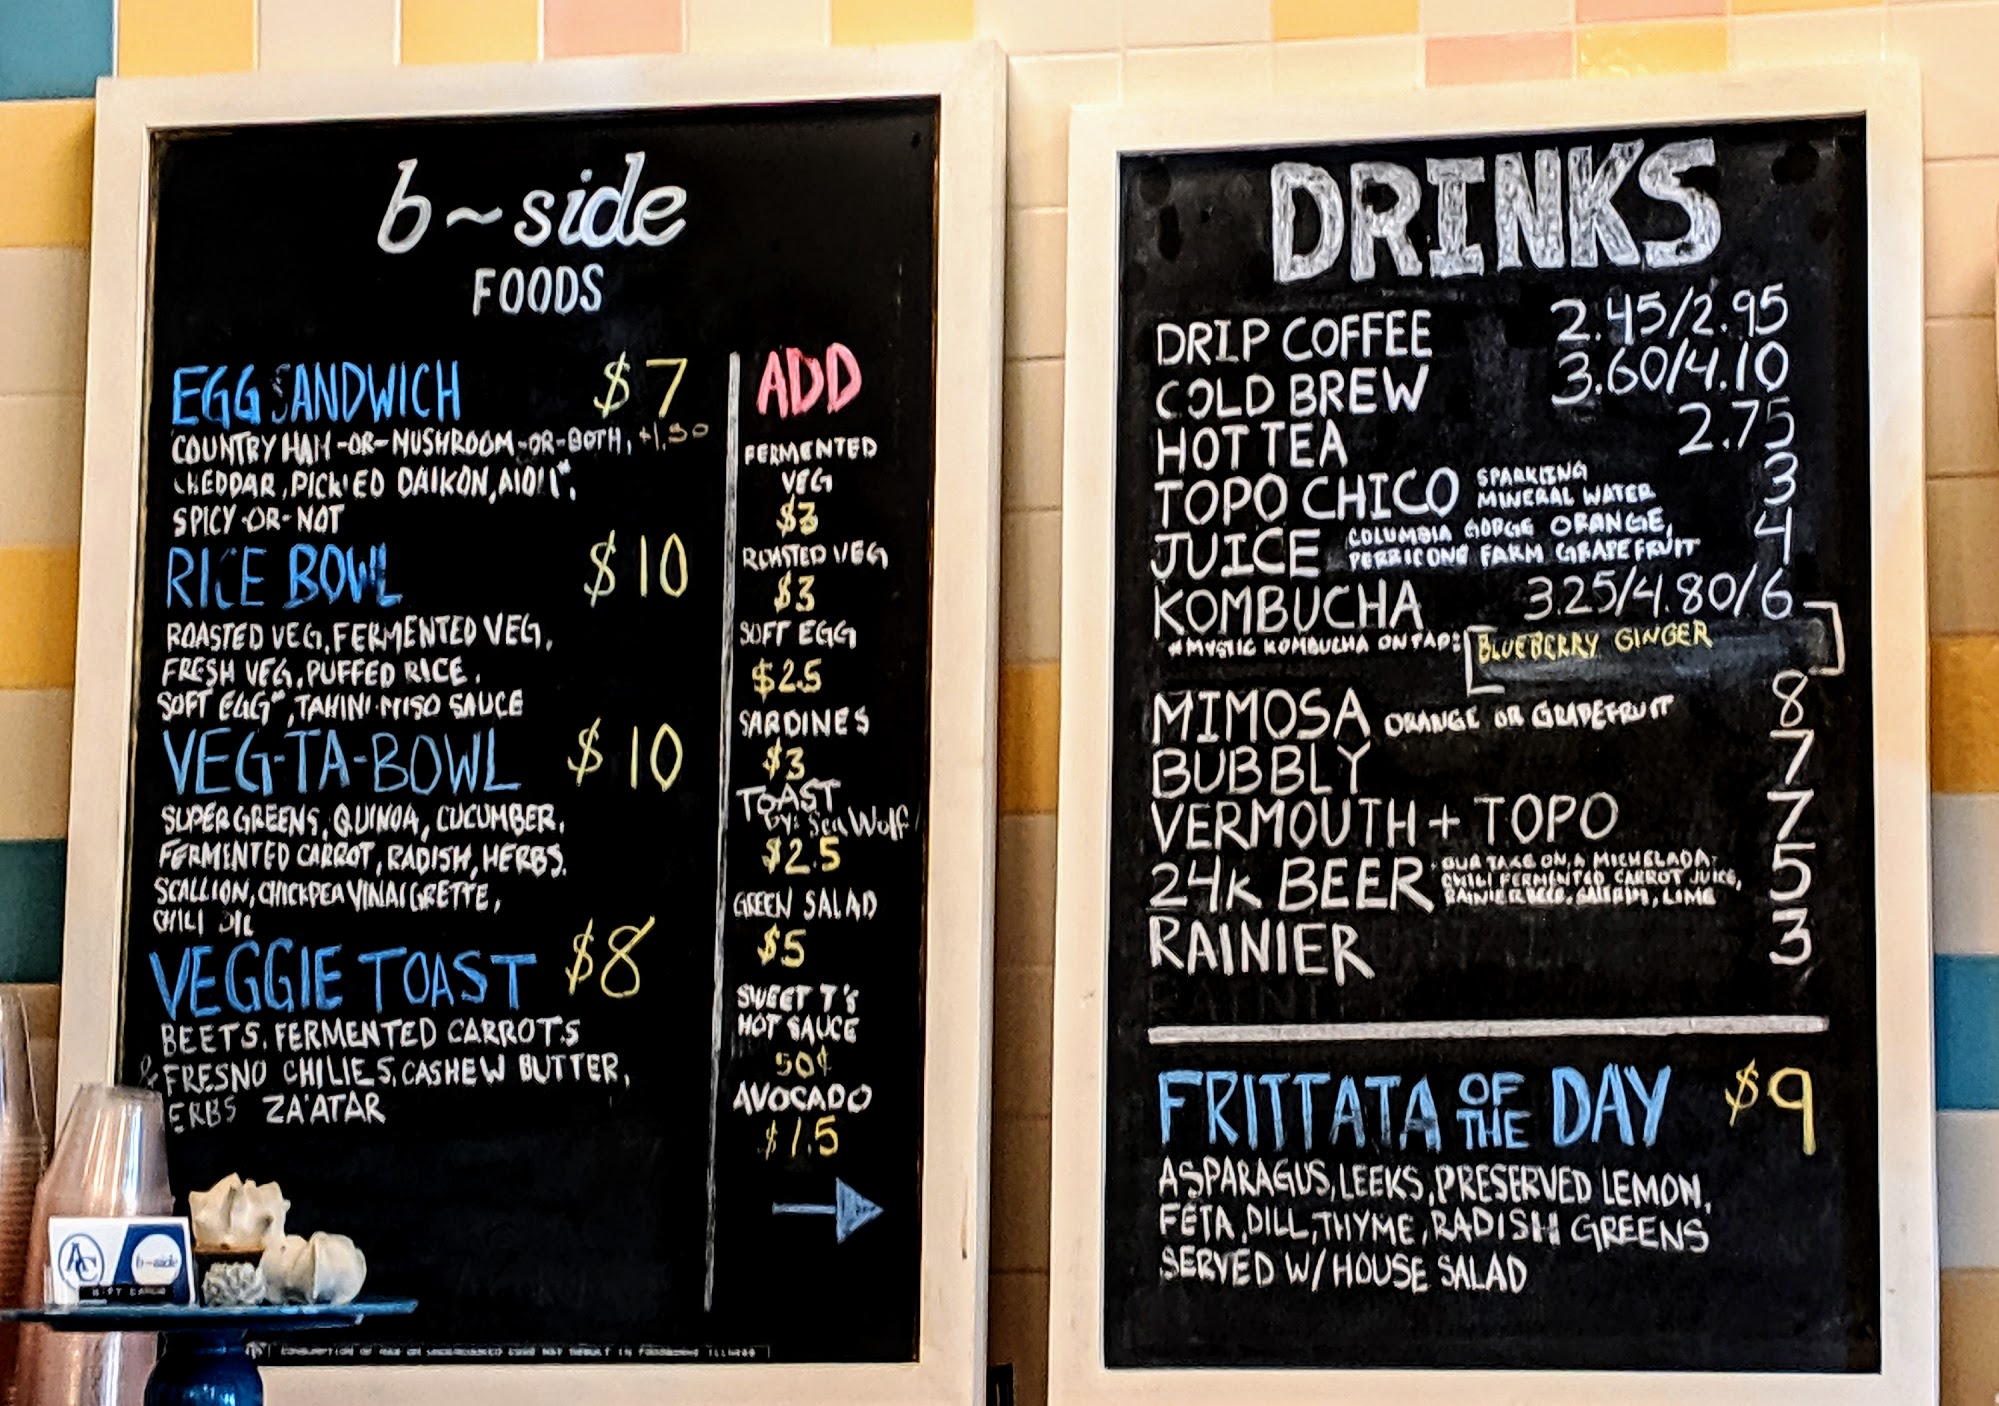 b~side
FOODS
EGG SANDWICH $7
COUNTRY HAM -OR- MUSHROOM -OR- BOTH, +1.50
CHEDDAR, PICKLED DAIKON, AIOLI*,
SPICY-OR-NOT
RICE BOWL $10
ROASTED VEG, FERMENTED VEG,
FRESH VEG, PUFFED RICE,
SOFT EGG*, TAHINI-MISO SAUCE
VEG-TA-BOWL $10
SUPER GREENS, QUINOA, CUCUMBER,
FERMENTED CARROT, RADISH, HERBS,
SCALLION, CHICKPEA VINAIGRETTE,
CHILI OIL
VEGGIE TOAST $8
BEETS, FERMENTED CARROTS
& FRESNO CHILIES, CASHEW BUTTER,
ERBS ZA'ATAR
ADD
FERMENTED
VEG
$3
ROASTED VEG
$3
SOFT EGG
$2.5
SARDINES
$3
TOAST
by: Sea Wolf
$2.5
GREEN SALAD
$5
SWEET T'S
HOT SAUCE
50¢
AVOCADO
$1.5
CONSUMPTION OF RAW OR UNDERCOOKED EGGS MAY RESULT IN FOODBORNE ILLNESS
AC
b-side
DRINKS
DRIP COFFEE 2.45/2.95
COLD BREW 3.60/4.10
HOT TEA 2.75
TOPO CHICO SPARKLING 3
MINERAL WATER
JUICE COLUMBIA GORGE ORANGE, 4
PERRICONE FARM GRAPEFRUIT
KOMBUCHA 3.25/4.80/6
*MYSTIC KOMBUCHA ON TAP: BLUEBERRY GINGER
MIMOSA ORANGE OR GRAPEFRUIT 8
BUBBLY 7
VERMOUTH + TOPO 7
24K BEER OUR TAKE ON A MICHELADA- 5
CHILI FERMENTED CARROT JUICE,
RAINIER BEER, LIME
RAINIER 3
FRITTATA OF THE DAY $9
ASPARAGUS, LEEKS, PRESERVED LEMON,
FETA, DILL, THYME, RADISH GREENS
SERVED W/ HOUSE SALAD